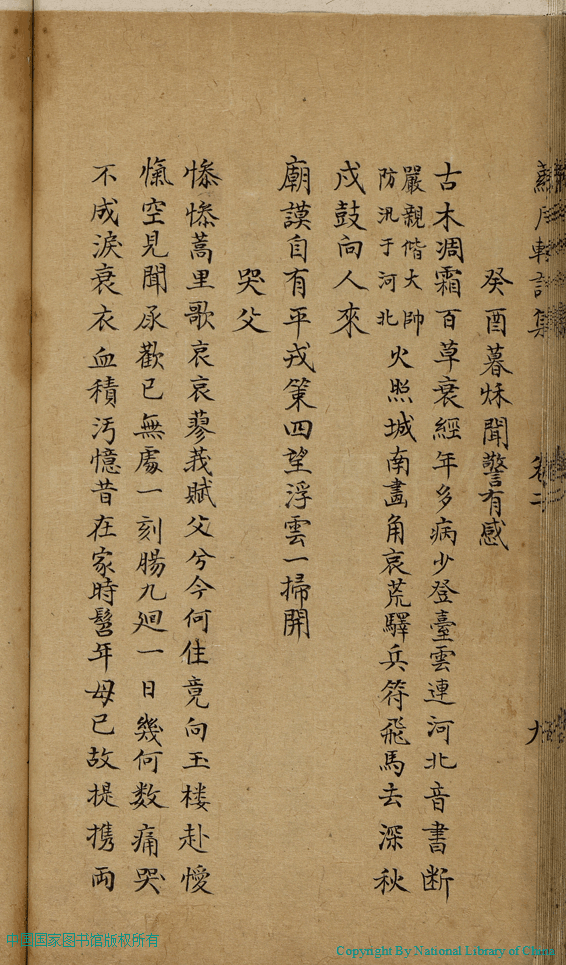 癸酉暮秌聞警有感
古木凋霜百草衰經年多病少登臺雲連河北音書断
嚴親偕大帥
防汛于河北
火照城南畫角哀荒驛兵符飛馬去深秋
戍鼓向人來
廟謨自有平戎策四望浮雲一掃開
哭父
慘慘蒿里歌哀哀蓼莪賦父兮今何住竟向玉楼赴懓
愾空見聞承歡已無處一刻腸九廻一日幾何数痛哭
不成淚衰衣血積汚憶昔在家時髫年母已故提携両
中国国家图书馆版权所有
Copyright By National Library of China